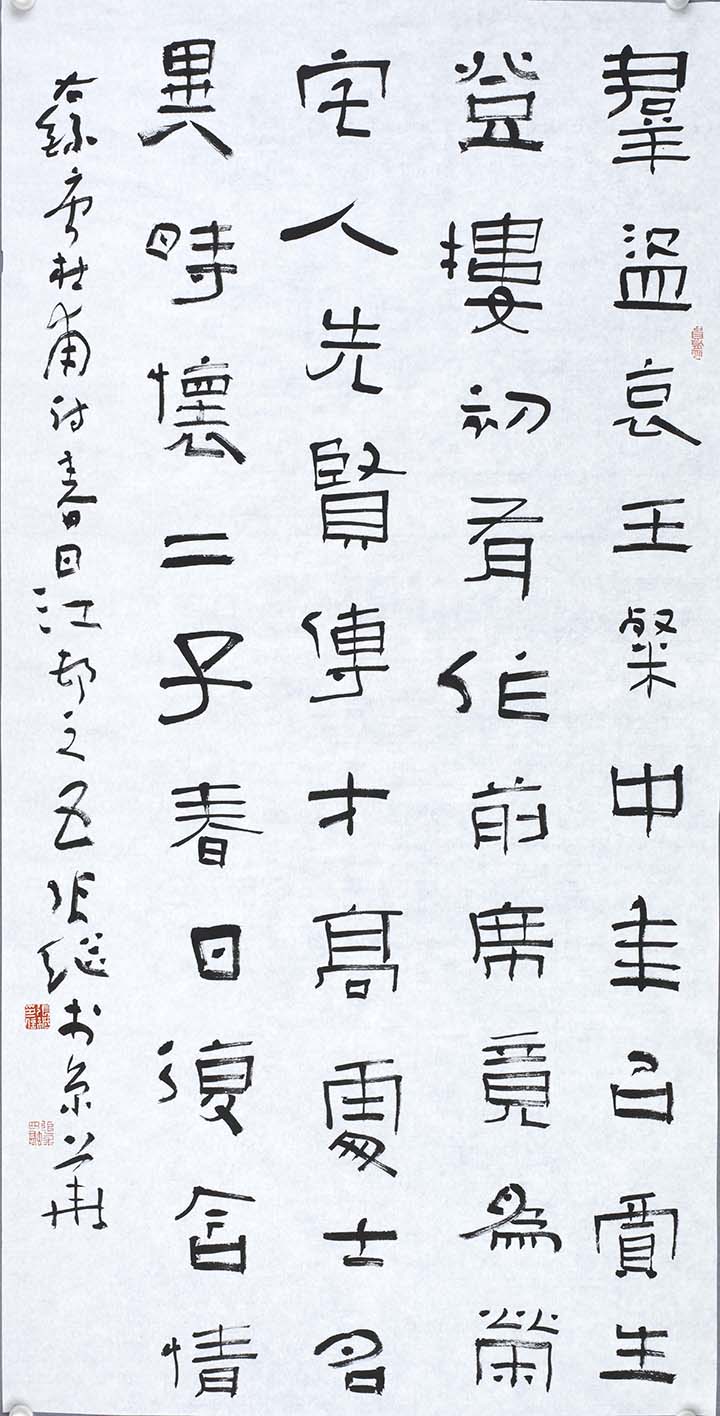 羣盜哀王粲中年召賈生
登樓初有作前席竟為榮
宅入先賢傳才高處士名
異時懷二子春日復含情
右錄唐杜甫詩春日江邨之五張繼於京華